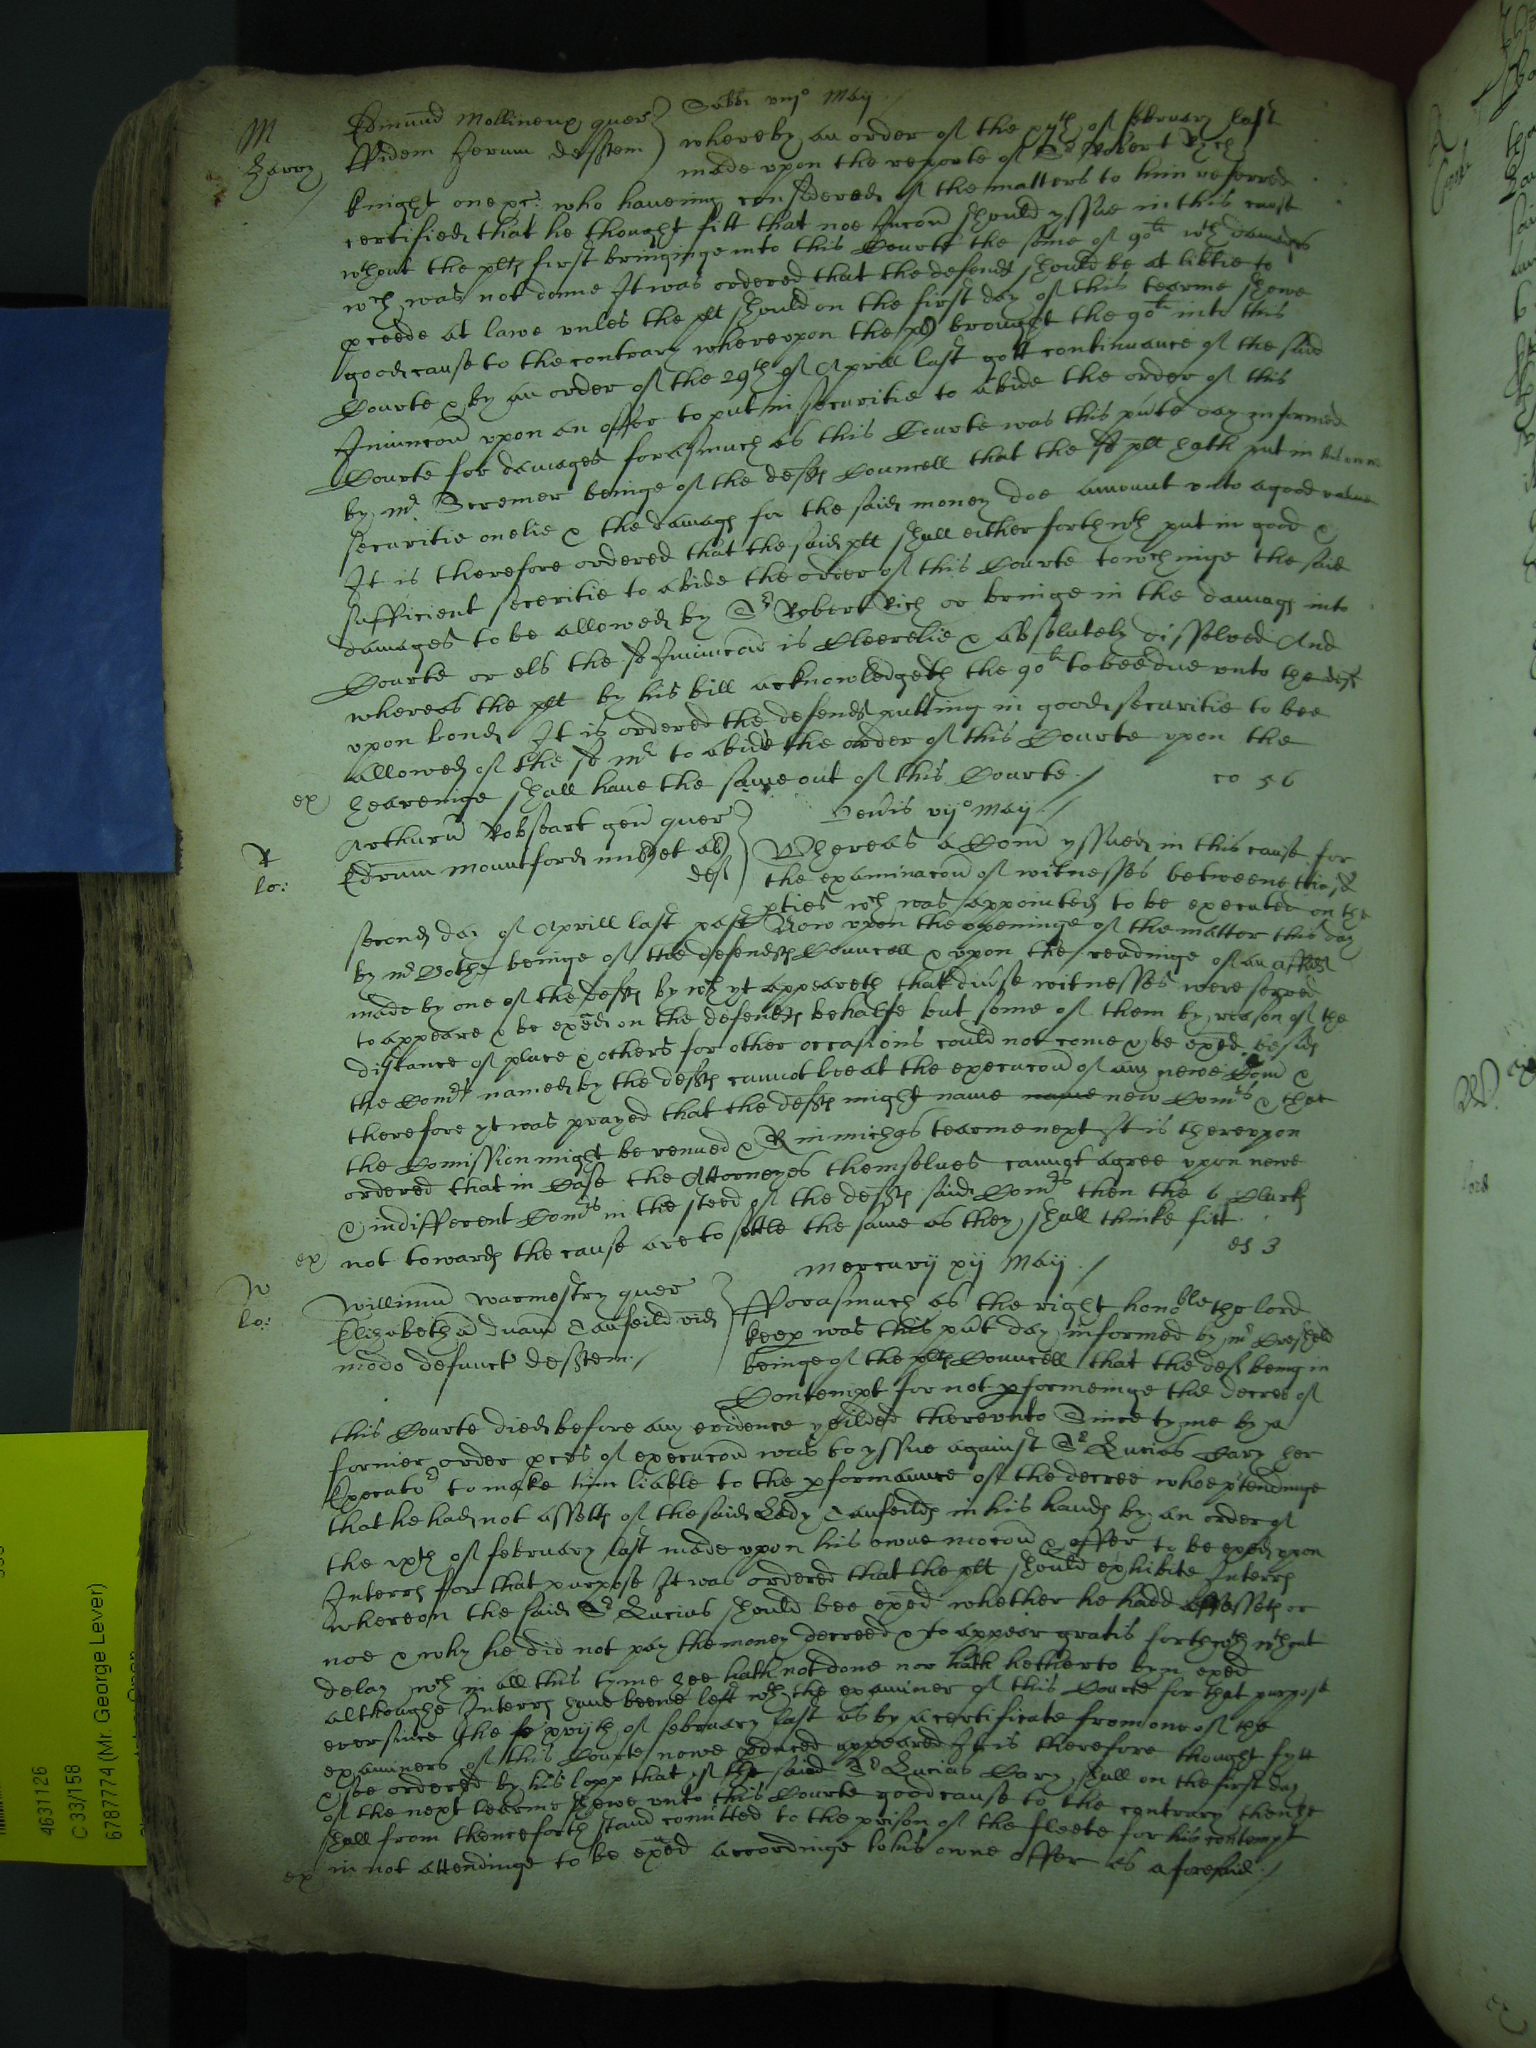 Sabbi viijo Maij
M
Edmund Mollineux quer
whereby an order of the xjth of february last
Harry
ffidem Heruni defftem
made upon the reporte of Sr Robert Rych
knight one &c. who haveing considered of the matters to him referred
certified that he thought fitt that noe Iniuncon should yssue in this cause
wthout the plts first bringinge into this Courte the some of 90li wth damages
wch was not donne It was ordered that the defendt should be at libtie to
pceede at lawe unles the plt should on the first day of this tearme shewe
good cause to the contrary whereupon the plt brought the 90li into this
Courte & by an order of the 29th of Aprill last gott continuance of the said
Iniuncon upon an offer to put in securitie to abide the order of this
Courte for damages forasmuch as this Courte was this pnte day informed
by Mr beinge of the defts Councell that the sd plt hath put in
securitie onelie & the damags for the said money doe amount unto a good value
It is therefore ordered that the said plt shall either forthwth put in good &
sufficient securitie to abide the order of this Courte towchinge the said
damages to be allowed by Sr Robert Rich or bringe in the damags into
Courte or els the sd Iniuncon is Cleerelie & absolutely dissolved And
whereas the plt by his bill acknowledgeth the 90li to bee due unto the deft
upon bond It is ordered the defendt putting in good securitie to bee
allowed of the sd Mr to abide the order of this Courte upon the
ex
hearinge shall have the same out of this Courte
co 56
Jovis vijo Maij
R
Arthurus Robseart gen quer
Whereas a Com yssued in this cause for
lo:
Edrum Mountford mil et al
the examinacon of witnesses betweene the sd
def
pties wch was appointed to be executed on the
second day of Aprill last past Now upon the openinge of the matter this day
by Mr beinge of the defendts Councell & upon the readinge of an affidt
made by one of the defts by wch yt appeareth that divrse witnesses were served
to appeare & be exed on the defendts behalfe but some of them by reason of the
distance of place & others for other occasions could not come & be exed besids
the Comrs named by the defts cannot bee at the execucon of any newe Com &
therefore yt was prayed that the defts might name new Comrs & that
the Comission might be renued & R in michas tearme next It is thereupon
ordered that in Case the Attorneyes themselves cannot agree upon newe
& indifferent Comrs in the steed of the defts said Comrs then the 6 Clarks
ex
not towards the cause are to settle the same as they shall thinke fitt
es 3
Mercurij xij Maij
W
Willimus Warmestry quer
fforasmuch as the right honoble the lord
lo:
Elizabetham duam Tanfeild vid
keep was this pnt day informed by Mr
modo defunct defftem
beinge of the plts Councell that the def being in
Contempt for not pformeinge the decree of
this Courte died before any evidence yeilded thereunto Since tyme by a
former order pces of execucon was to yssue against Sr Lucius Cary her
Executor to make him liable to the pformaunce of the decree whoe ptendinge
that he had not assetts of the said Lady Tanfeilds in his hands by an order of
the ixth of february last made upon his owne mocon & offer to be exed upon
Interrs for that purpose It was ordered that the plt should exhibite Interrs
whereon the said Sr Lucius should bee exed whether he hadd assetts or
noe & why he did not pay the money decreed & to appeir gratis forthwth wthout
delay wch in all this tyme hee hath not done nor hath hetherto byn exed
althoughe Interrs have beene left wth the examiner of this Courte for that purpose
ever since the sd xvijth of february last as by a certificate from one of the
examiners of this Courte nowe pduced appeared It is therefore thought fytt
& soe ordered by his lopp that if the said Sr Lucius Cary shall on the first day
of the next tearme shewe unto this Courte good cause to the contrary then he
shall from thenceforth stand comitted to the prison of the fleete for his contempt
ex
in not attendinge to be exed accordinge to his owne offer as aforesaid
4631126
C 33/158
6787774 (Mr. George Lever)